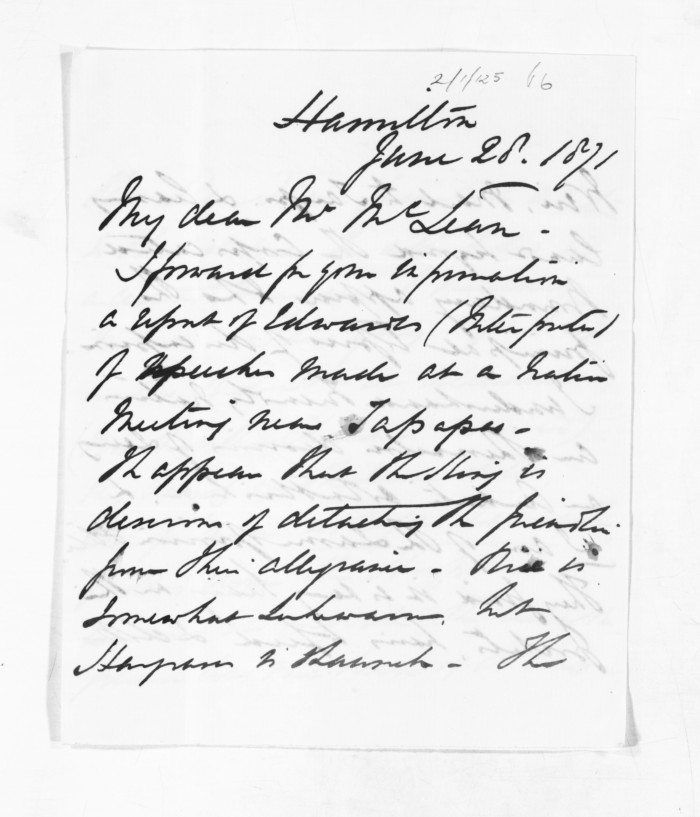 2/1/125 16
Hamilton
June 28. 1871
My dear Mr McLean -
I forward for your information
a report of Edwards (Interpreter)
of speeches made at a native
meeting near Tapapa -
It appears that the King is
desirous of detaching the friendlies
from their allegiance - is
somewhat lukewarm, but
is staunch - The